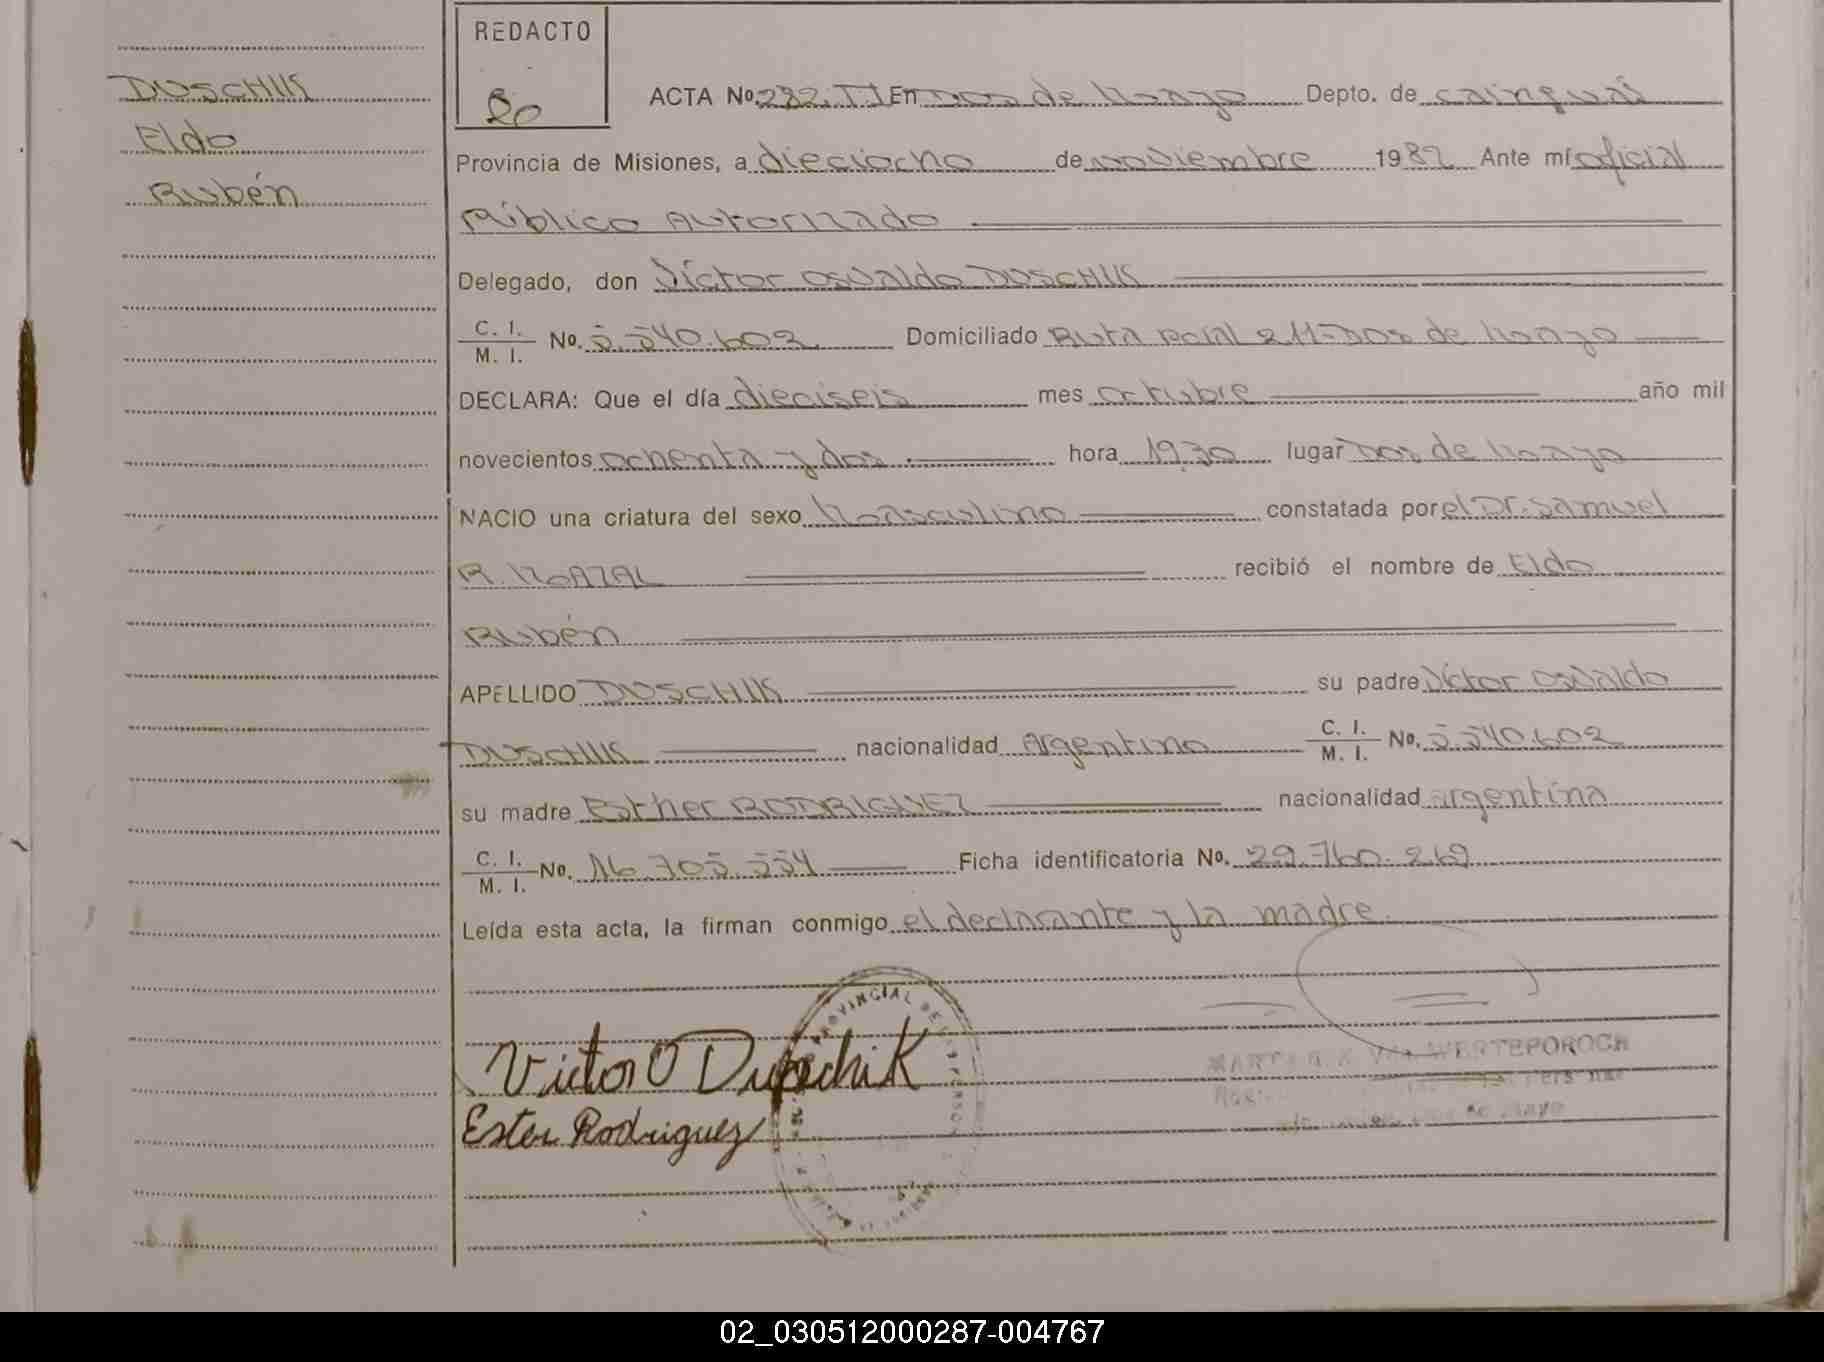 REDACTO
DUSCHIK
ACTA No. 282. TI En Dos de Mayo Depto. de Cainguás
Eldo
Rubén
Provincia de Misiones, a dieciocho de noviembre 1982 Ante mí oficial
Público Autorizado
Delegado, don Víctor Osvaldo DUSCHIK
C. I.
M. I. No. 5.540.602 Domiciliado Ruta 211-Dos de Mayo
DECLARA: Que el día dieciseis mes octubre año mil
novecientos ochenta y dos hora 19,30 lugar Dos de Mayo
NACIO una criatura del sexo Masculino constatada por el Dr. Samuel
R. MOAZAL recibió el nombre de Eldo
Rubén
APELLIDO DUSCHIK su padre Víctor Osvaldo
DUSCHIK nacionalidad Argentino C. I.
M. I. No. 5.540.602
su madre Esther RODRIGUEZ nacionalidad argentina
C. I.
M. I. No. 16.705.554 Ficha identificatoria No. 29.760.269
Leída esta acta, la firman conmigo el declarante y la madre.
PROVINCIAL DE
Victor O Duschik
Ester Rodriguez
de Mayo
02_030512000287-004767